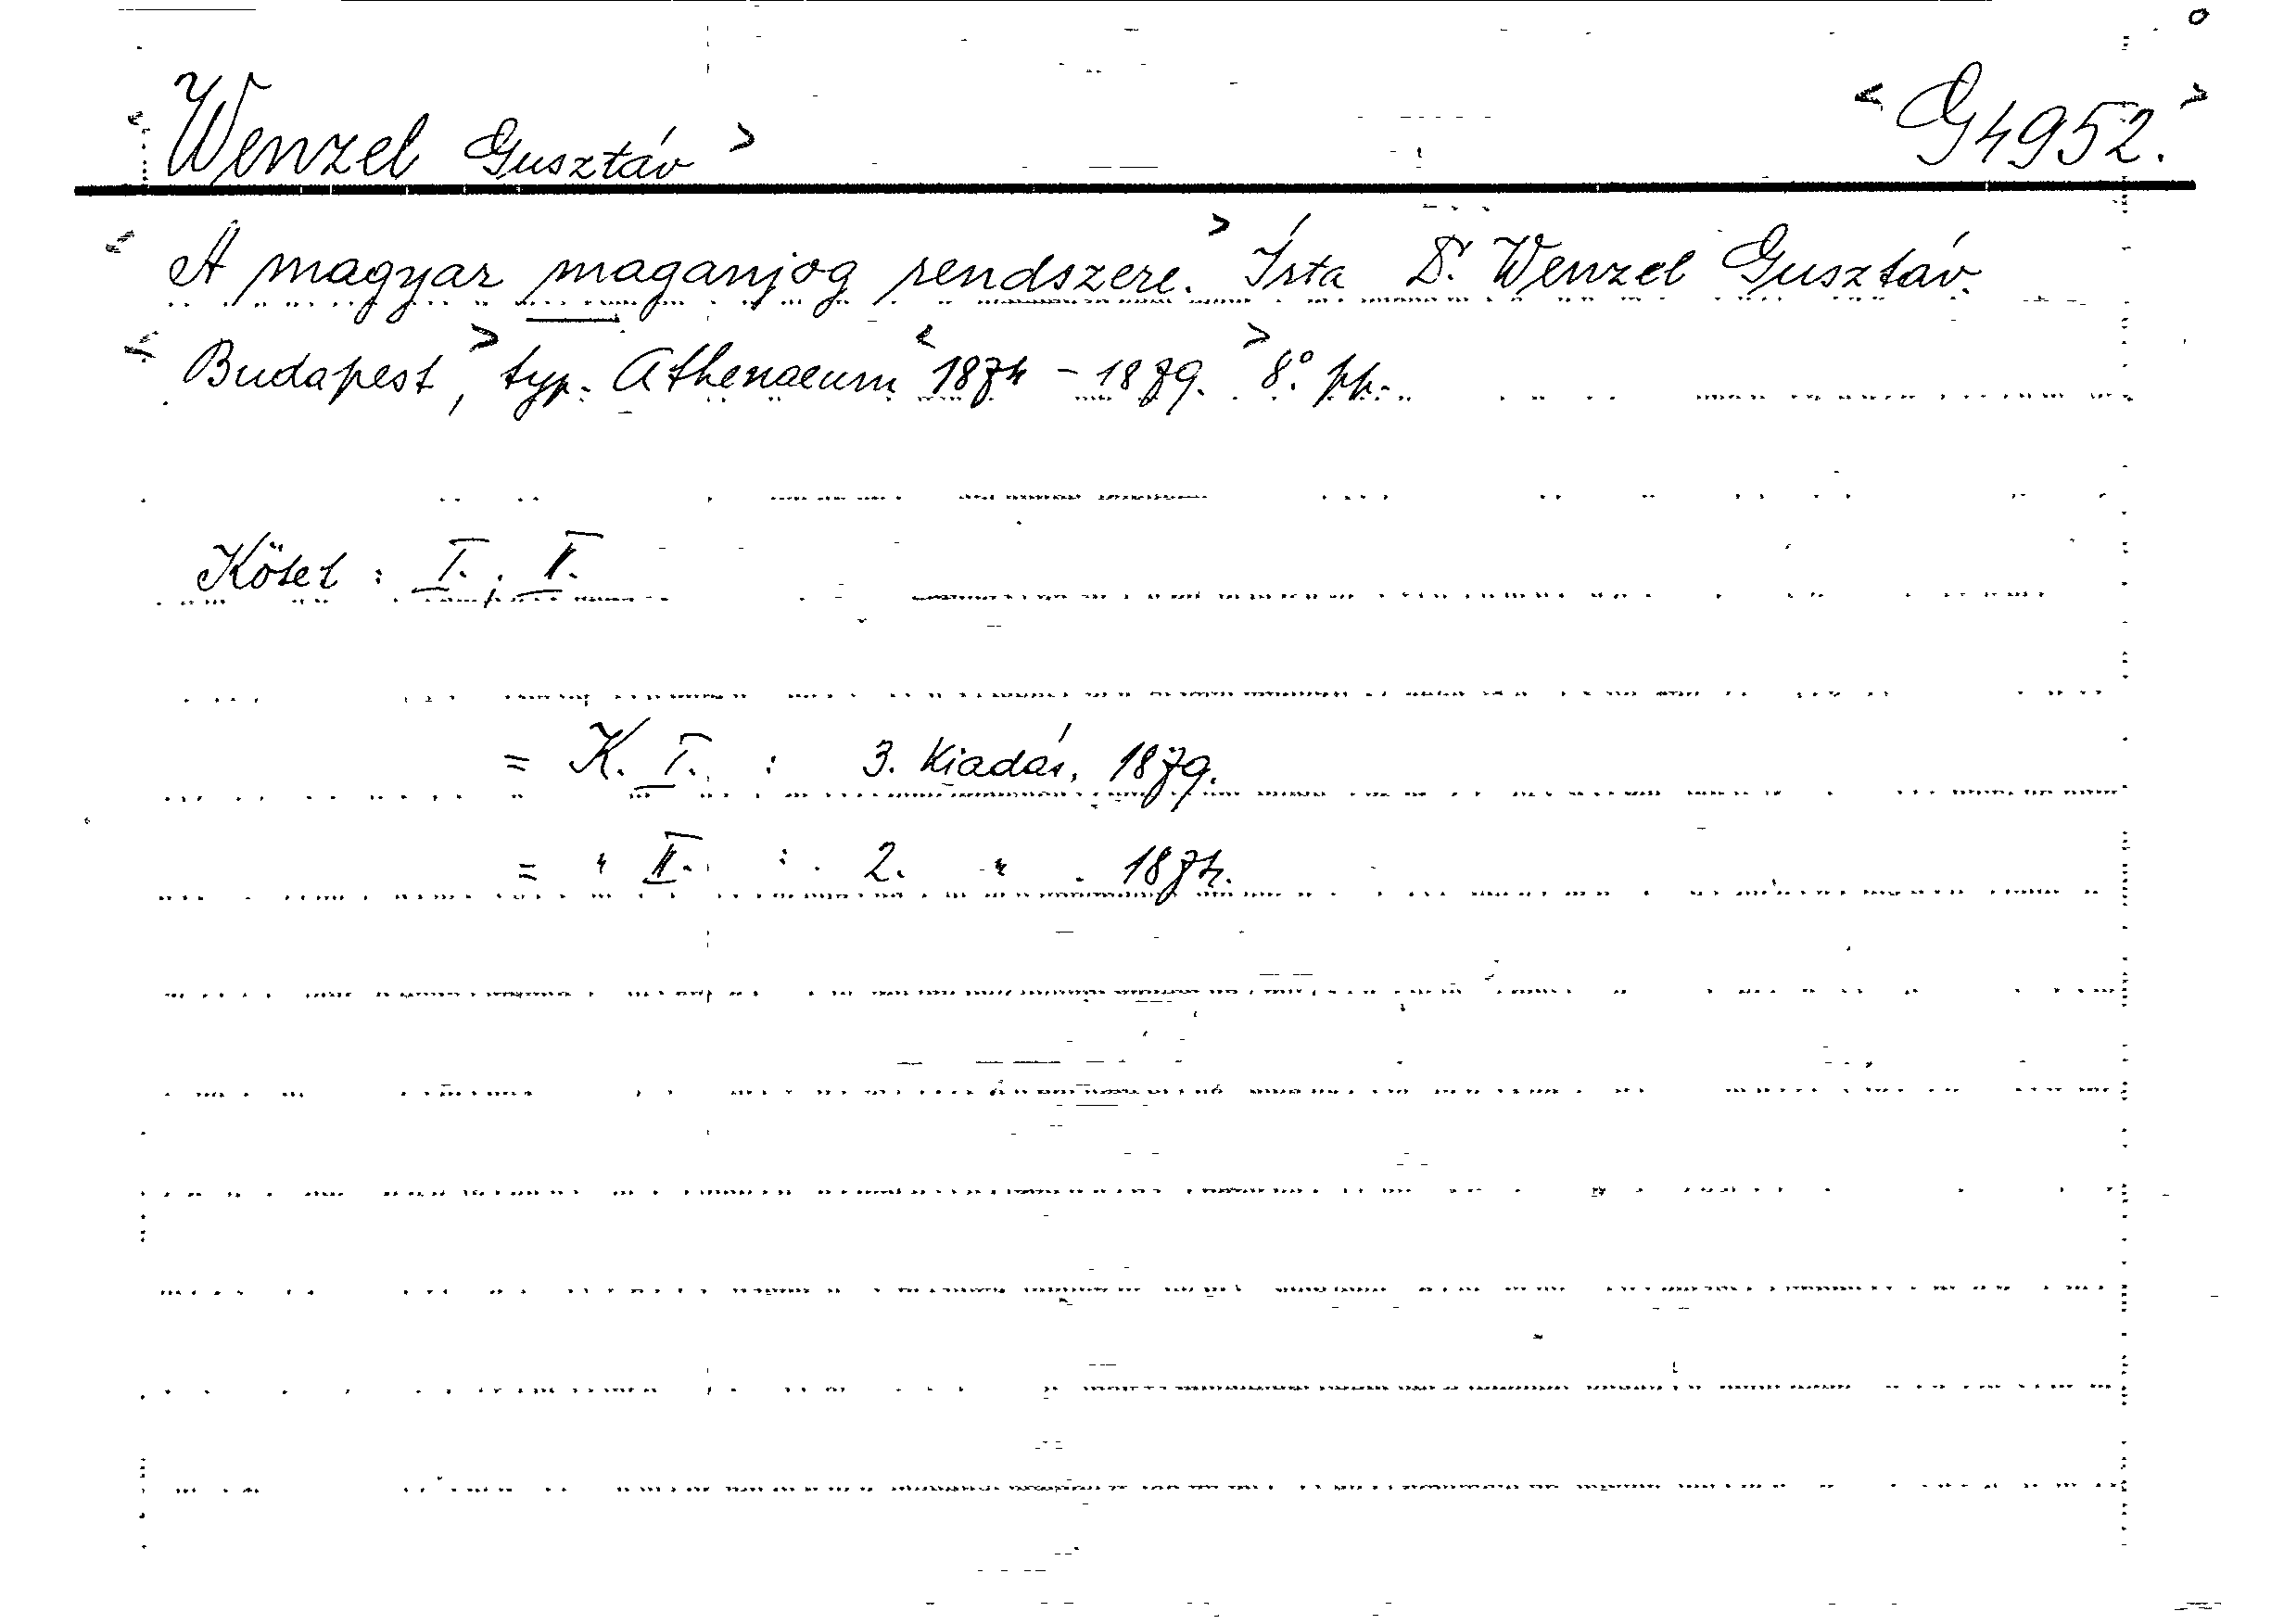 < Wenzel Gusztáv > < G 4952. >
< A magyar maganjog rendszere. > Írta Dr. Wenzel Gusztáv.
< Budapest, > typ. Athenaeum < 1874 - 1879. > 8.° pp.
Kötet : I., II.
= K. I. : 3. Kiadás, 1879.
= " II. : 2. " . 1874.